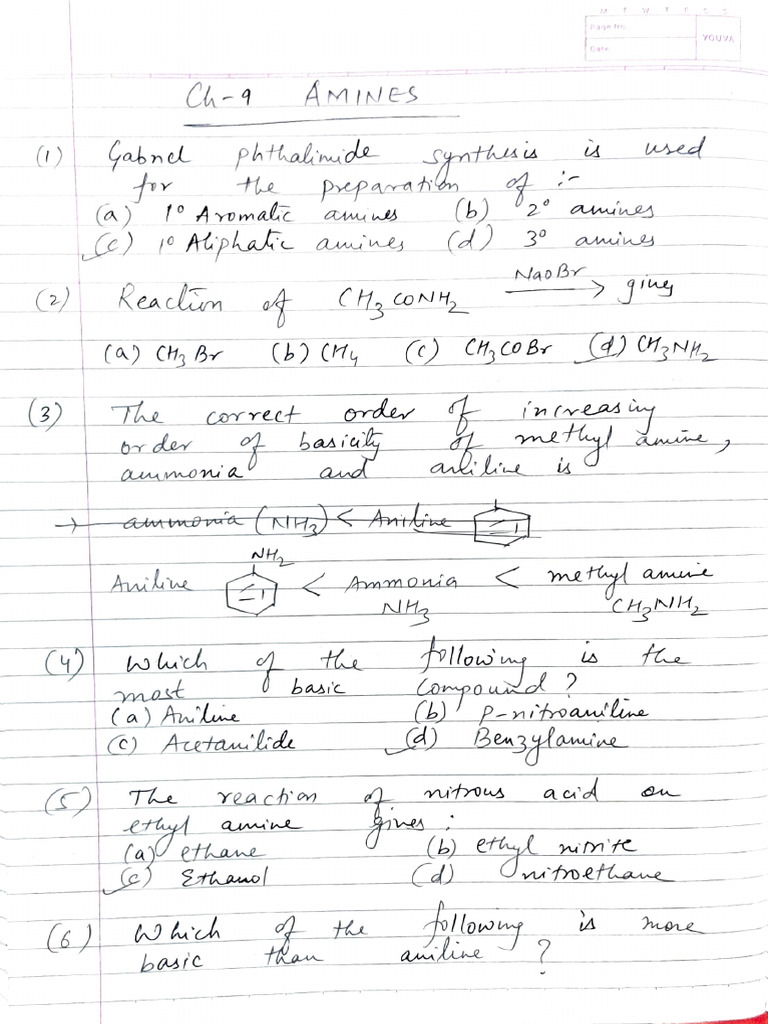 M T W T F S S
Page No.
YOUVA
Date
Ch-9 AMINES
(1) Gabriel phthalimide synthesis is used
for the preparation of :-
(a) 1° Aromatic amines (b) 2° amines
(c) 1° Aliphatic amines (d) 3° amines
(2) Reaction of CH3CONH2 NaOBr → gives
(a) CH3Br (b) CH4 (c) CH3COBr (d) CH3NH2
(3) The correct order of increasing
order of basicity of methyl amine,
ammonia and aniline is
→ ammonia (NH3) < Aniline
NH2
Aniline < Ammonia < methyl amine
NH3 CH3NH2
(4) Which of the following is the
most basic compound?
(a) Aniline (b) P-nitroaniline
(c) Acetanilide (d) Benzylamine
(5) The reaction of nitrous acid on
ethyl amine gives :
(a) ethane (b) ethyl nitrite
(c) Ethanol (d) nitroethane
(6) Which of the following is more
basic than aniline ?